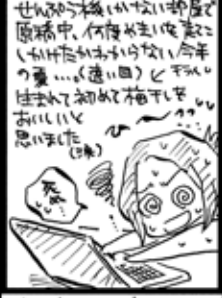 せんぷう機しかない部屋で
原稿中、何度めまいを起こ
しかけたかわからない今年
の夏…。(遠い目)と
生まれて初めて梅干しを
おいしいと
思いました
(涙)
死ぬ…